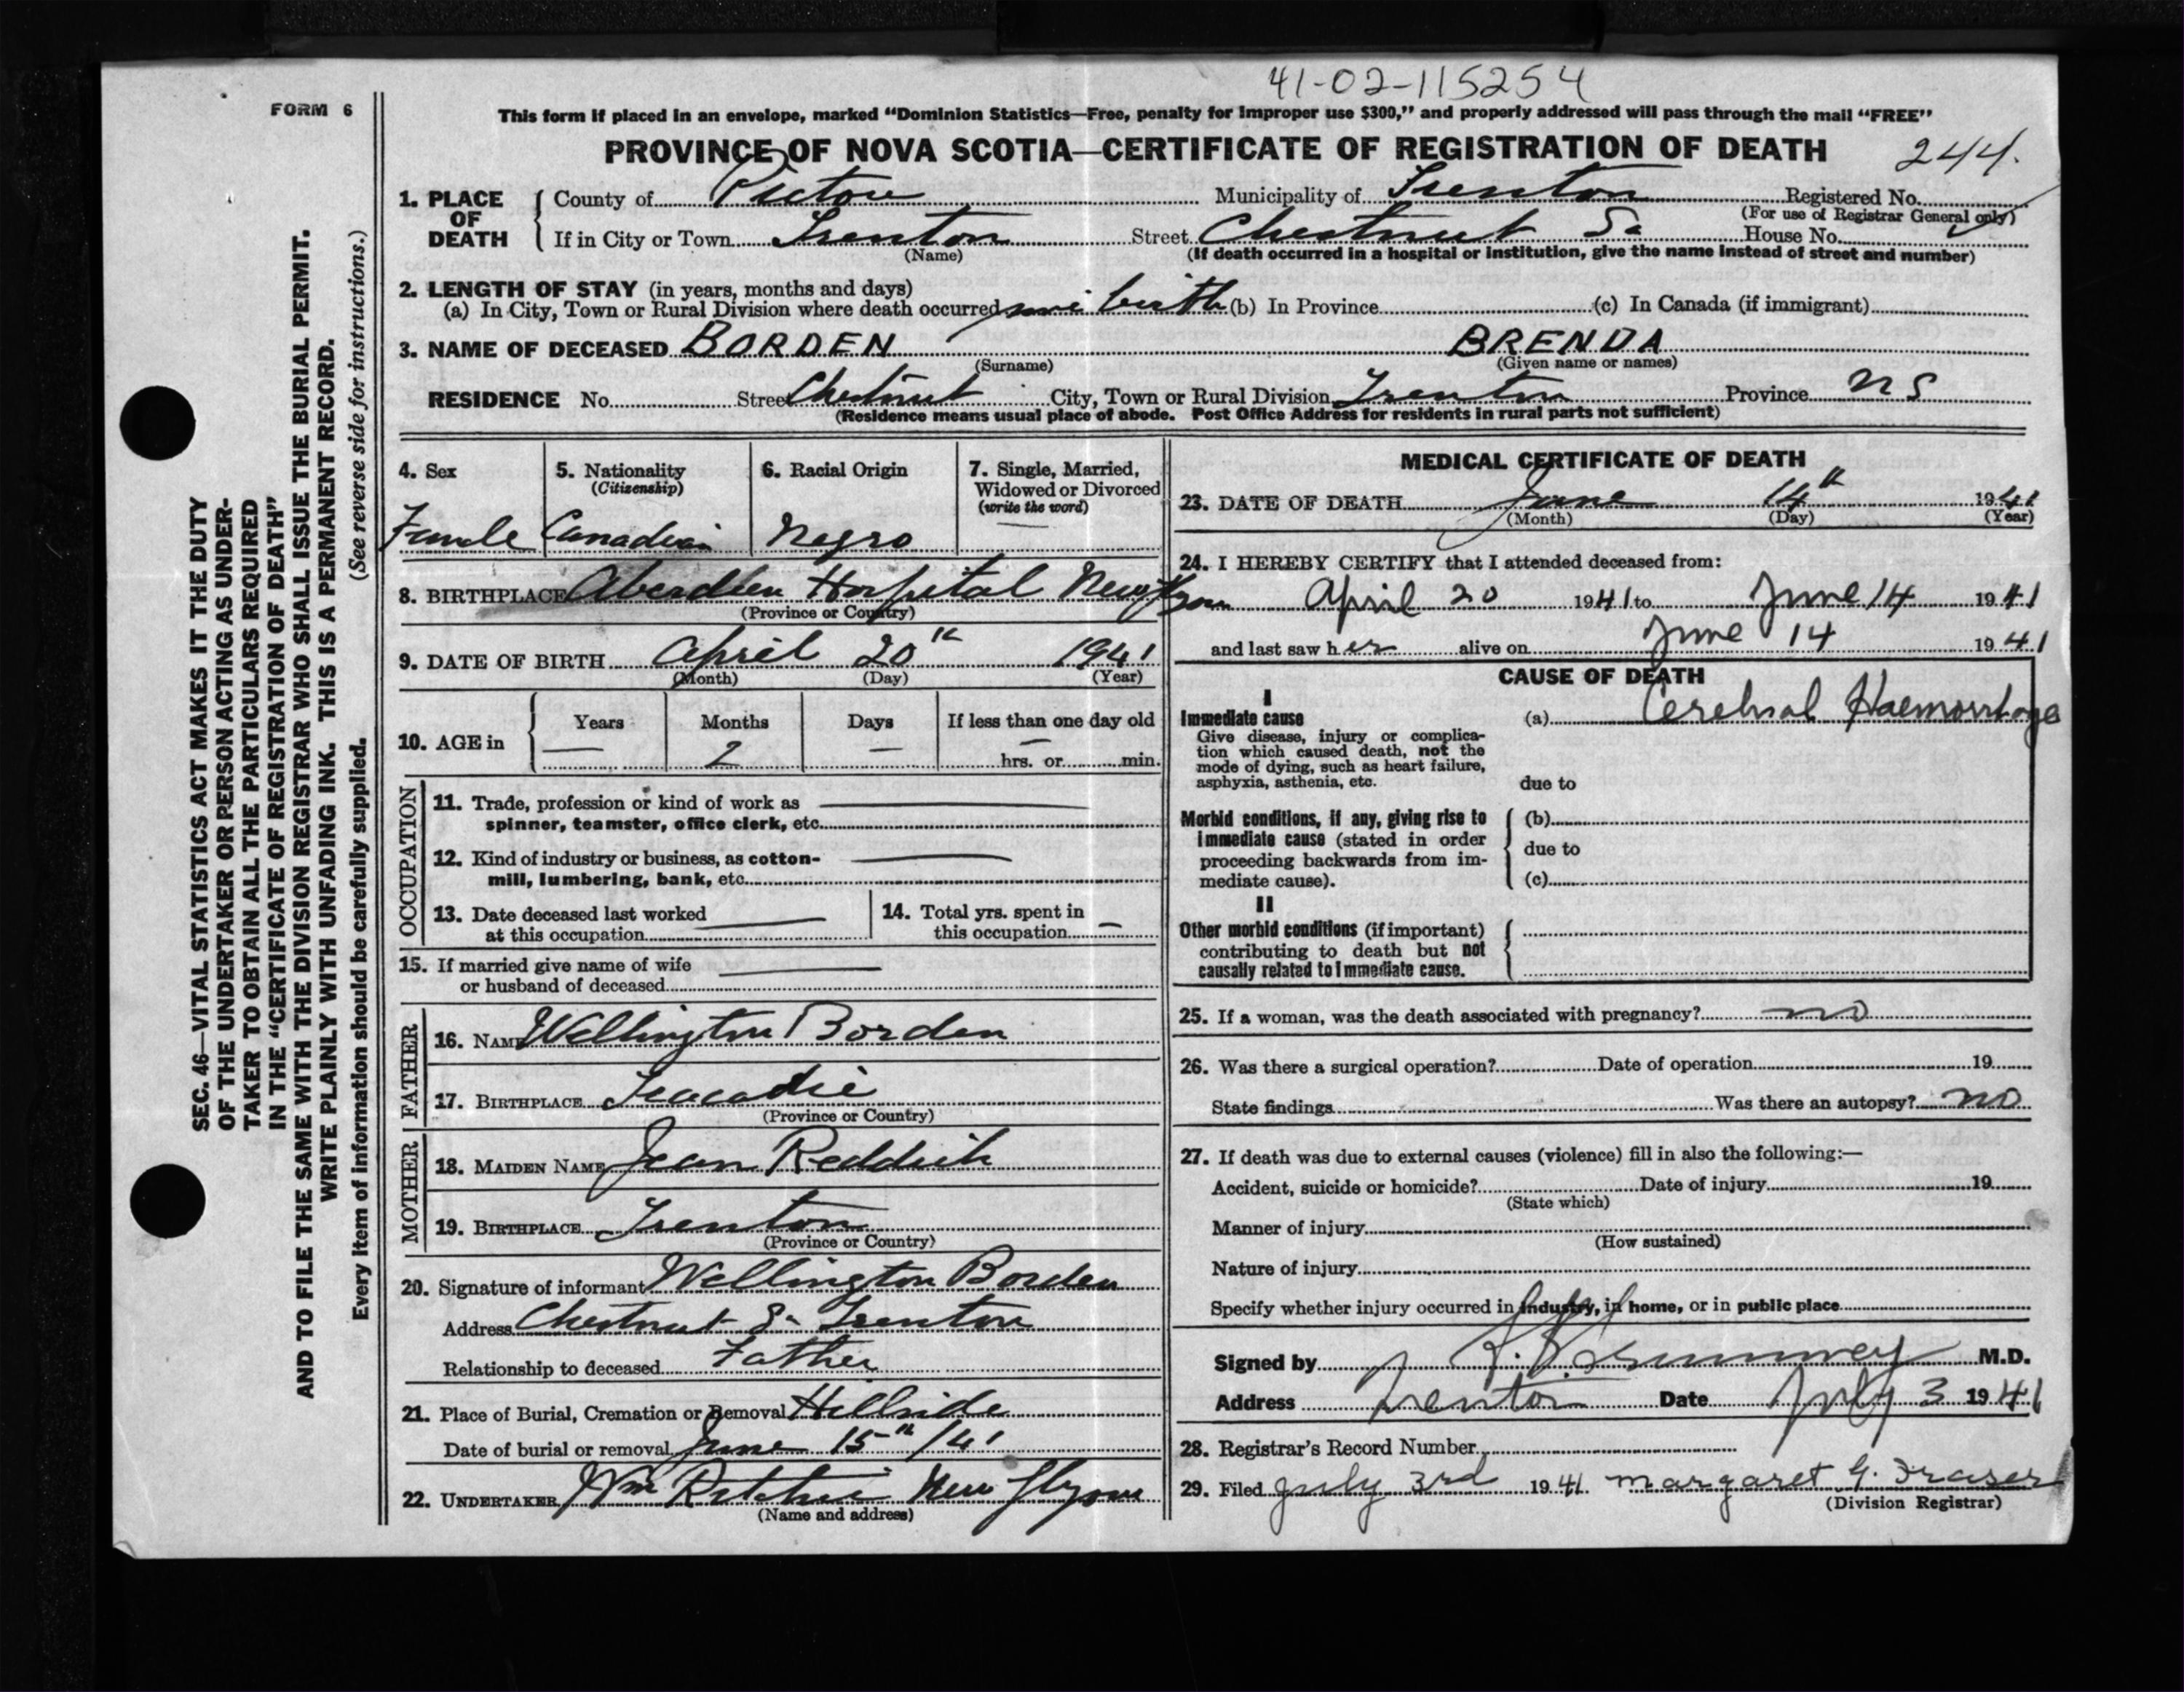 41-02-115254
FORM 6
This form if placed in an envelope, marked "Dominion Statistics—Free, penalty for improper use $300," and properly addressed will pass through the mail "FREE"
PROVINCE OF NOVA SCOTIA—CERTIFICATE OF REGISTRATION OF DEATH 244.
1. PLACE OF DEATH County of Pictou Municipality of Trenton Registered No.
(For use of Registrar General only)
If in City or Town Trenton Street Chestnut St House No.
(Name) (If death occurred in a hospital or institution, give the name instead of street and number)
2. LENGTH OF STAY (in years, months and days)
(a) In City, Town or Rural Division where death occurred birth (b) In Province (c) In Canada (if immigrant)
3. NAME OF DECEASED BORDEN BRENDA
(Surname) (Given name or names)
RESIDENCE No. Street Chestnut City, Town or Rural Division Trenton Province NS
(Residence means usual place of abode. Post Office Address for residents in rural parts not sufficient)
4. Sex 5. Nationality (Citizenship) 6. Racial Origin 7. Single, Married, Widowed or Divorced (write the word)
Female Canadian Negro —
8. BIRTHPLACE Aberdeen Hospital New
(Province or Country)
9. DATE OF BIRTH April 20th 1941
(Month) (Day) (Year)
10. AGE in Years Months Days If less than one day old
— 2 — — hrs. or min.
OCCUPATION
11. Trade, profession or kind of work as
spinner, teamster, office clerk, etc.
12. Kind of industry or business, as cotton-
mill, lumbering, bank, etc.
13. Date deceased last worked
at this occupation
14. Total yrs. spent in
this occupation —
15. If married give name of wife
or husband of deceased
FATHER
16. NAME Wellington Borden
17. BIRTHPLACE Tracadie
(Province or Country)
MOTHER
18. MAIDEN NAME Jean Reddick
19. BIRTHPLACE Trenton
(Province or Country)
20. Signature of informant Wellington Borden
Address Chestnut St Trenton
Relationship to deceased Father
21. Place of Burial, Cremation or Removal Hillside
Date of burial or removal June 15th /41
22. UNDERTAKER Wm Ritchie New
(Name and address)
MEDICAL CERTIFICATE OF DEATH
23. DATE OF DEATH June 14th 1941
(Month) (Day) (Year)
24. I HEREBY CERTIFY that I attended deceased from:
April 20 1941 to June 14 1941
and last saw her alive on June 14 1941
CAUSE OF DEATH
I
Immediate cause (a) Cerebral Haemorrhage
Give disease, injury or complica-
tion which caused death, not the
mode of dying, such as heart failure,
asphyxia, asthenia, etc. due to
Morbid conditions, if any, giving rise to (b)
immediate cause (stated in order
proceeding backwards from im- due to
mediate cause). (c)
II
Other morbid conditions (if important)
contributing to death but not
causally related to immediate cause.
25. If a woman, was the death associated with pregnancy? no
26. Was there a surgical operation? Date of operation 19
State findings Was there an autopsy? no
27. If death was due to external causes (violence) fill in also the following:—
Accident, suicide or homicide? Date of injury 19
(State which)
Manner of injury
(How sustained)
Nature of injury
Specify whether injury occurred in industry, in home, or in public place
Signed by M.D.
Address Trenton Date July 3 1941
28. Registrar's Record Number
29. Filed July 3rd 1941. Margaret G. Fraser
(Division Registrar)
SEC. 46—VITAL STATISTICS ACT MAKES IT THE DUTY
OF THE UNDERTAKER OR PERSON ACTING AS UNDER-
TAKER TO OBTAIN ALL THE PARTICULARS REQUIRED
IN THE "CERTIFICATE OF REGISTRATION OF DEATH"
AND TO FILE THE SAME WITH THE DIVISION REGISTRAR WHO SHALL ISSUE THE BURIAL PERMIT.
WRITE PLAINLY WITH UNFADING INK. THIS IS A PERMANENT RECORD.
Every item of information should be carefully supplied. (See reverse side for instructions.)